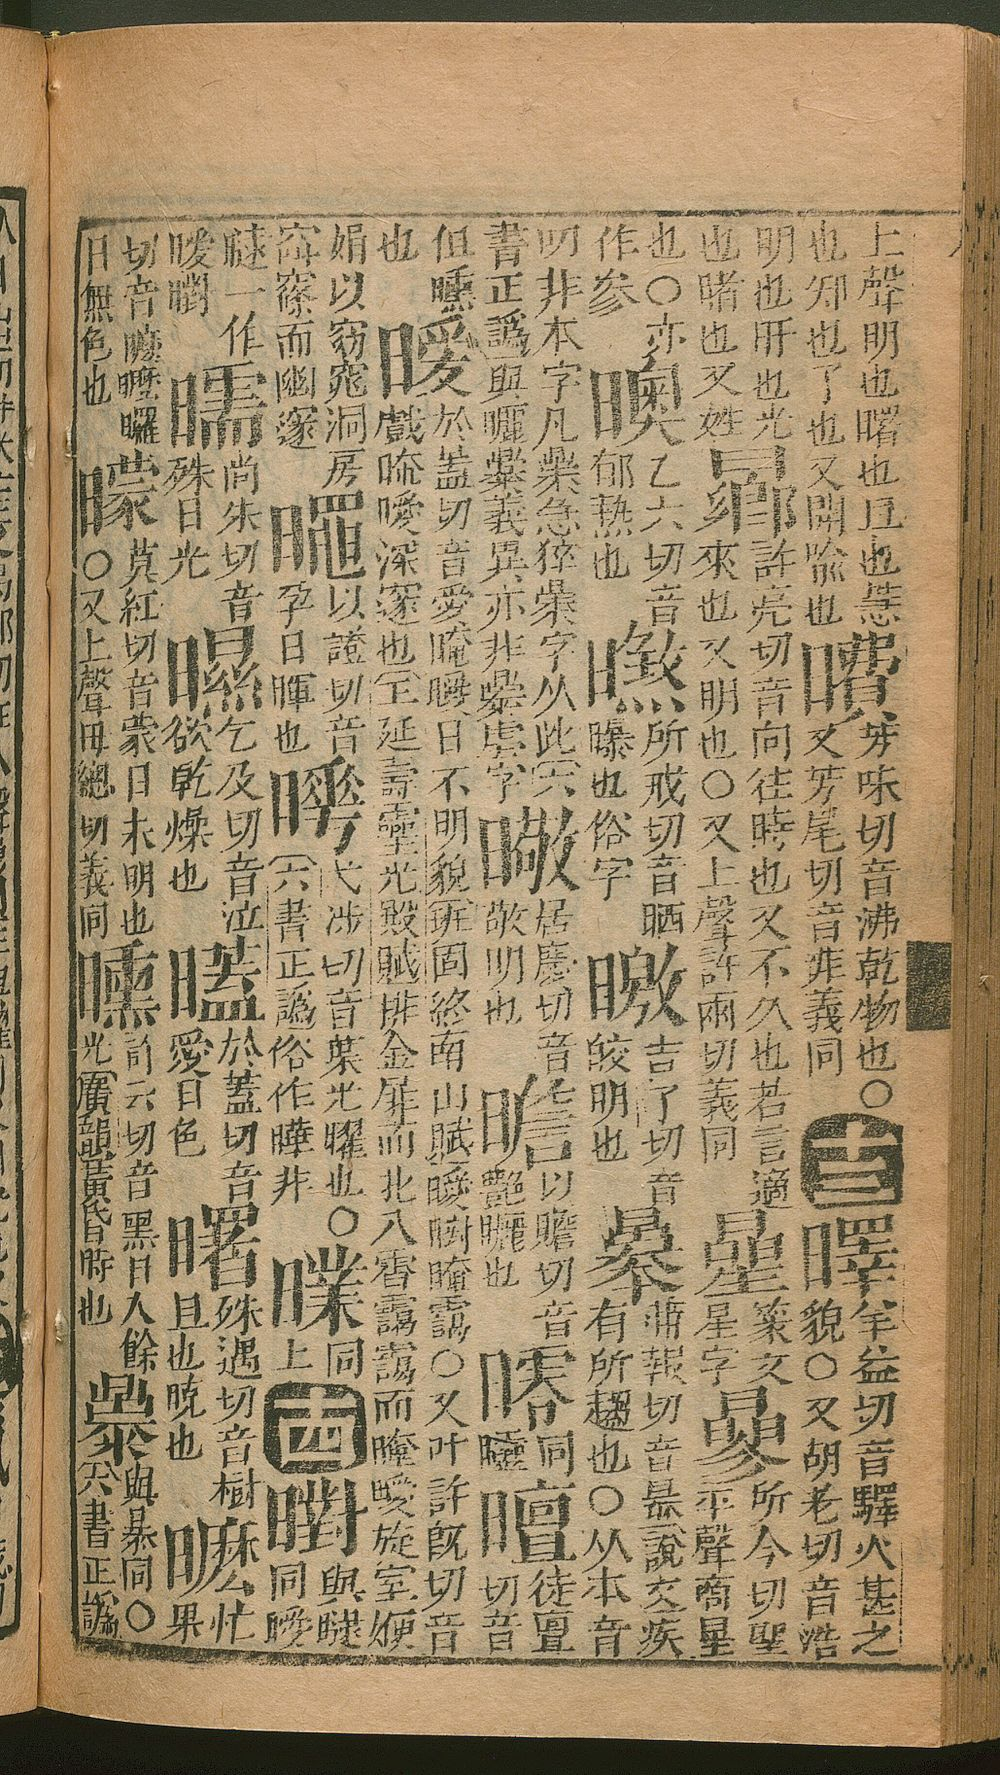 上聲明也曙也且也慧
也知也了也又開喩也
𣋉
芳味切音沸乾物也○
又芳尾切音非義同
十三
曎
羊益切音驛火甚之
貌○又胡老切音浩
明也旰也光
也曙也又姓
曏
許亮切音向往時也又不久也若言適
來也又明也○又上聲許兩切義同
曐
篆文
星字
曑
所今切聖
平聲商星
也○亦
作參
噢
乙六切音
郁熱也
所戒切音晒
曝也俗字
曒
吉了切音
皎明也
曓
蒲報切音暴說文疾
有所趨也○从本音
叨非本字凡㬥急猝㬥字从此六
書正譌與曬㬥義異亦非㬥虐字
曔
居慶切音
敬明也
以贍切音
豔曬也
同
曬
徒亶
切音
但
也
曖
於蓋切音愛晻曖日不明貌班固終南山賦曖㬣晻靄○又叶許旣切音
戲晻曖深邃也王延壽靈光殿賦排金扉而北入霄靄靄而晻曖旋室㛹
娟以窈窕洞房
窲而幽邃
以證切音
孕日暉也
弋涉切音葉光曜也○
六書正譌俗作曄非
㬥
同
上
十四
㬣
與
同曖
一作
曖㬣
曘
尚朱切音
殊日光
㬎
乞及切音泣
欲乾燥也
於蓋切音
愛日色
曙
殊遇切音樹
旦也曉也
忙果
切音
日無色也
曚
莫紅切音蒙日未明也
○又上聲母總切義同
曛
許云切音黑日入餘
光廣韻黃昏時也
㬥
與暴同○
六書正譌